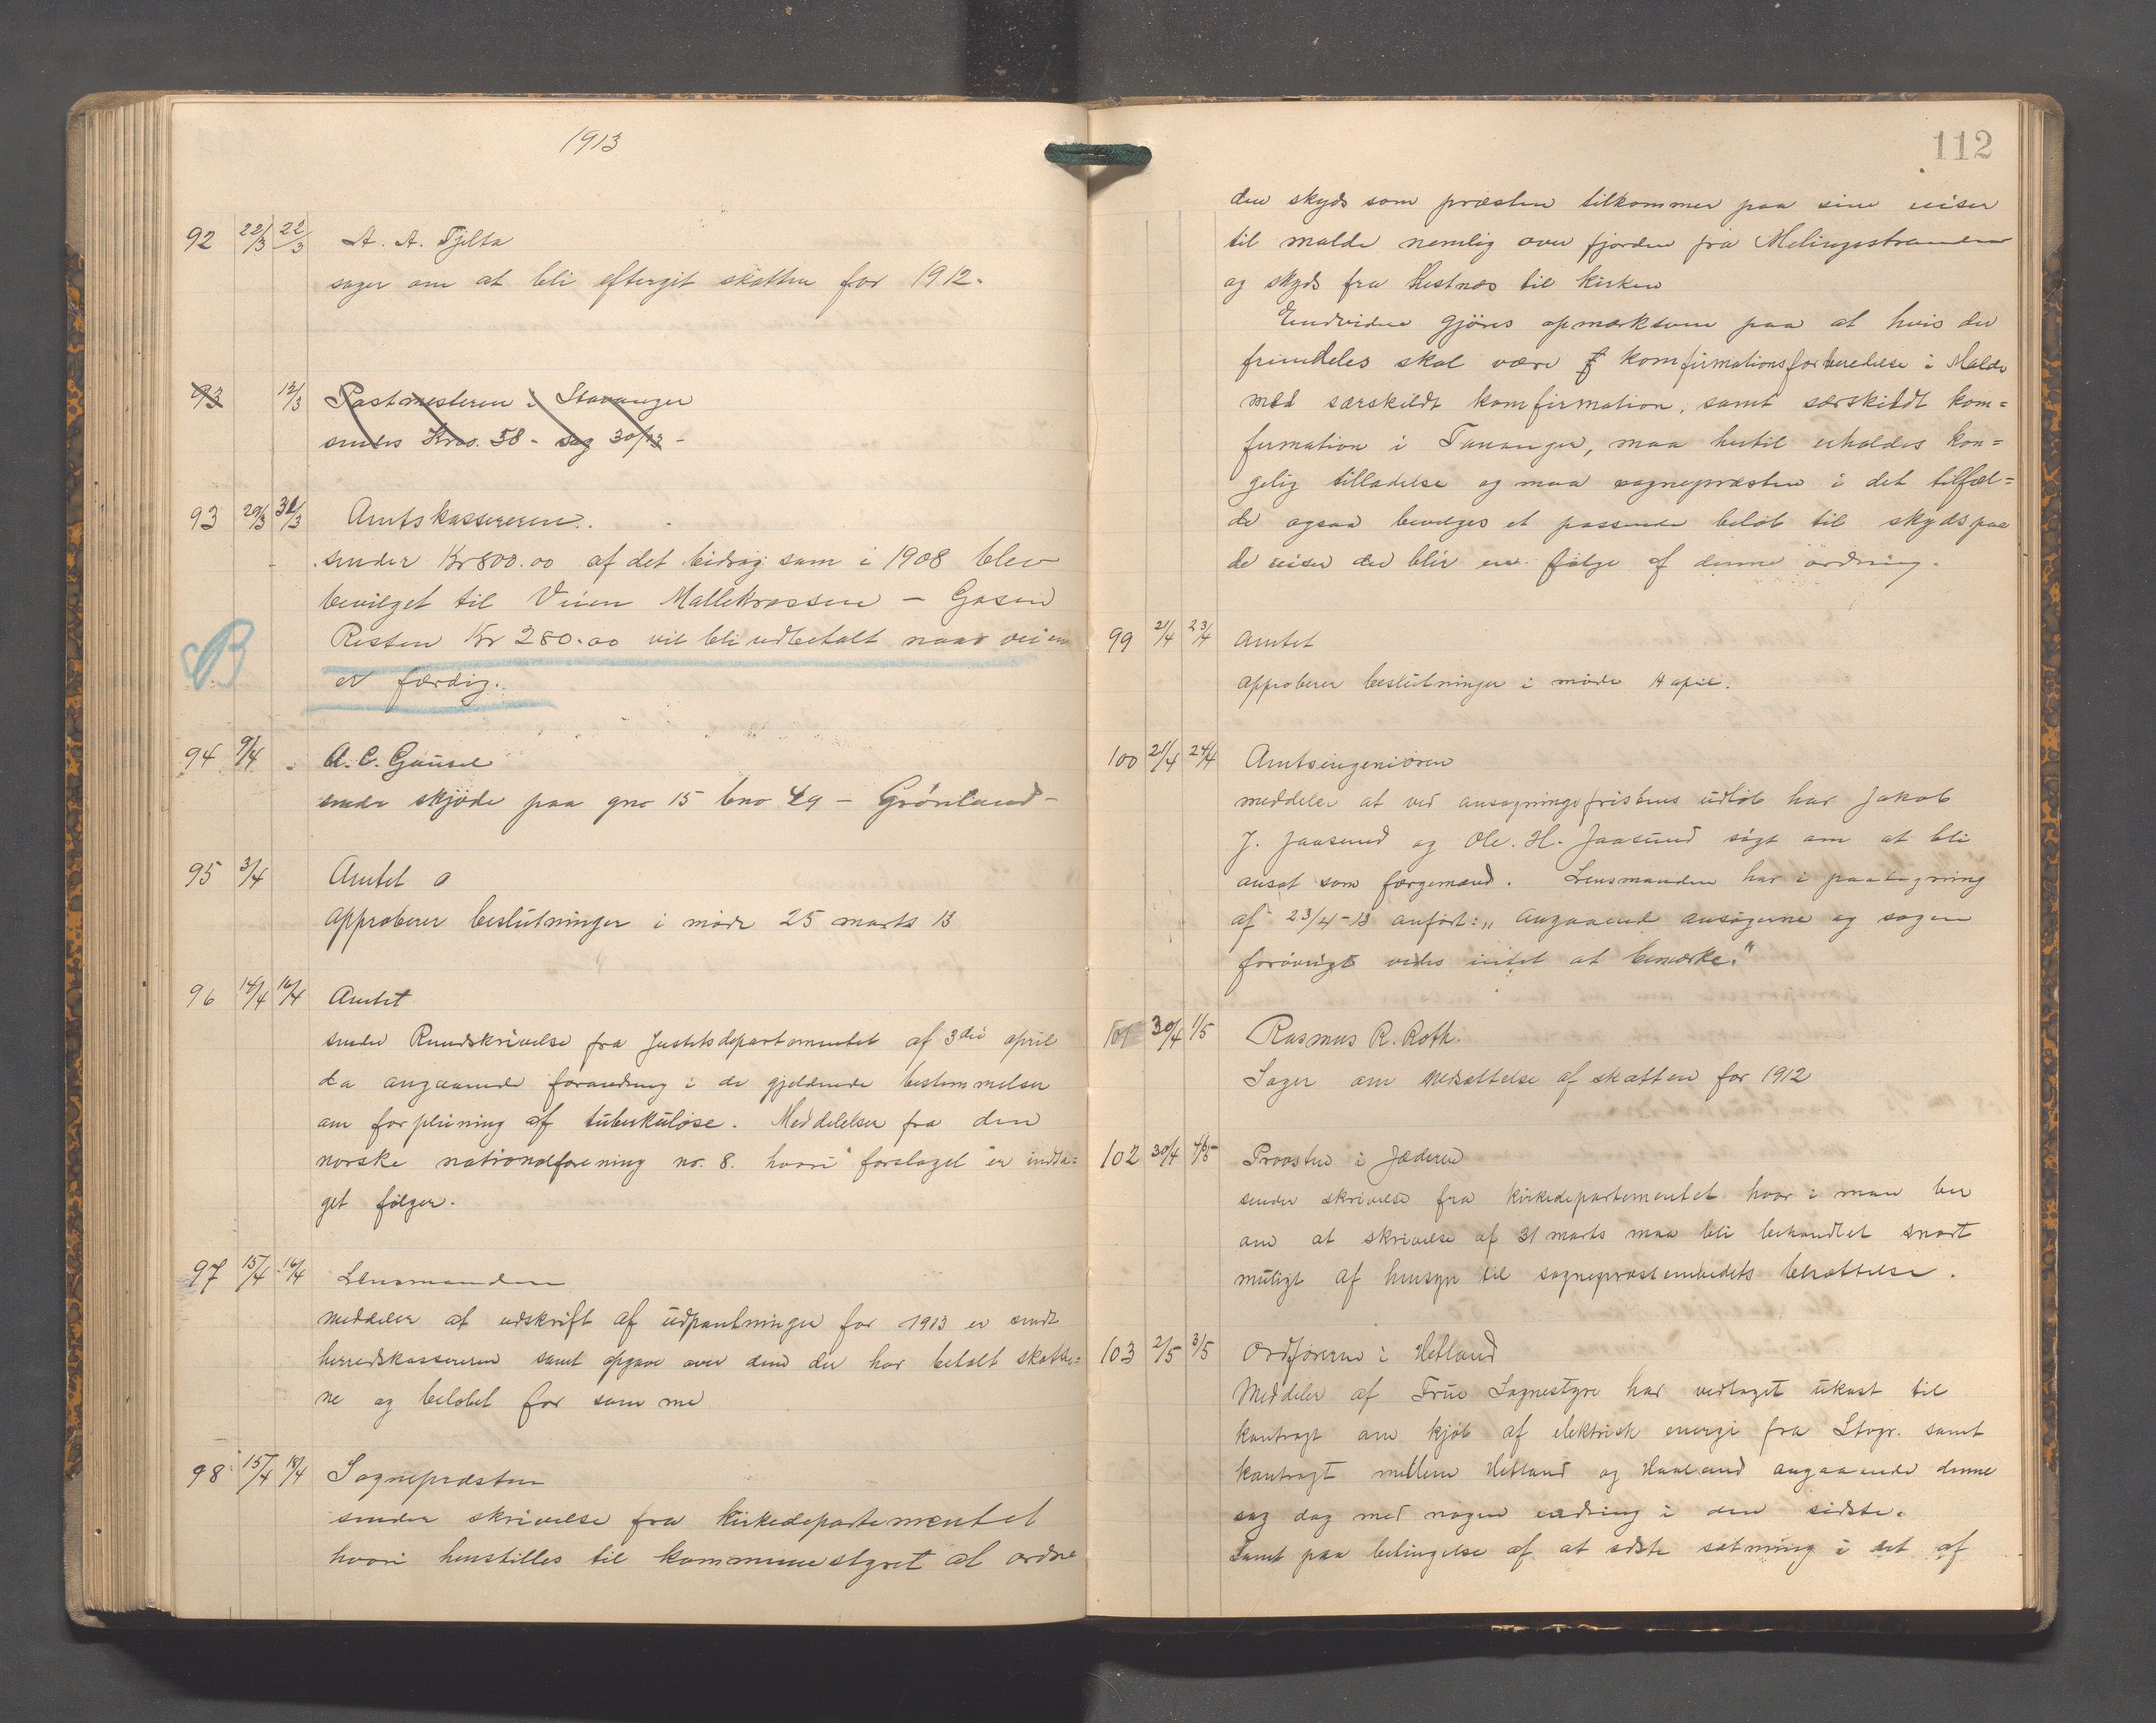 1913
92 22/3 22/3 A. A. Tjelta
søger om at bli eftergit skatten for 1912.
93 12/3 Postmesteren i Stavanger
sendes Kros. 58 - sag 30/13 -
93 29/3 31/3 Amtskassereren.
sender Kr 800.00 af det bidrag som i 1908 blev
bevilget til Veien Mallekrossen - Gosen
Resten Kr 280.00 vil bli udbetalt naar veien
er færdig.
94 9/4 A. C. Gausel
sender skjøde paa gno 15 bno 49 - Grönland -
95 3/4 Amtet
approberer beslutninger i møde 25 marts 13
96 14/4 16/4 Amtet
sender Rundskrivelse fra Justitsdepartementet af 3die april
d.a angaaende forandring i de gjeldende bestemmelser
om forpleining af tuberkuløse. Meddelelser fra den
norske nationalforening no. 8. hvori forslaget er indta=
get følger.
97 15/4 16/4 Lensmanden
meddeler at udskrift af udpantninger for 1913 er sendt
herredskassereren samt opgave over dem der har betalt skatte=
ne og beløbet for samme
98 15/4 18/4 Sognepræsten
sender skrivelse fra Kirkedepartementet
hvori henstilles til kommunestyret at ordne
112
den skyds som præsten tilkommer paa sine reiser
til Malde nemlig over fjorden fra Melingsstranden
og skyds fra Hestnes til kirken
Endvidere gjøres opmerksom paa at hvis der
fremdeles skal være komfirmationsforberedelse i Malde
med særskildt komfirmation, samt særskildt kom=
firmation i Tananger, maa hertil erholdes kon=
gelig tilladelse og maa sognepræsten i det tilfæl=
de ogsaa bevilges et passende beløb til skyds paa
de reiser der blir en følge af denne ordning.
99 21/4 23/4 Amtet
approberer beslutninger i møde 14 april.
100 21/4 24/4 Amtsingeniøren
meddeler at ved ansøgningsfristens udløb har Jakob
J. Jaasund og Ole. H. Jaasund søgt om at bli
ansat som færgemænd. Lensmanden har i paategning
af 23/4-13 anført: „Angaaende ansøgerne og sagen
forøvrigt vides intet at bemerke."
101 30/4 1/5 Rasmus R. Roth.
Søger om nedsættelse af skatten for 1912
102 30/4 4/5 Provsten i Jæderen
sender skrivelse fra Kirkedepartementet hvor i man ber
om at skrivelse af 31 marts maa bli behandlet snart
muligt af hensyn til sognepræstembedets besættelse.
103 2/5 3/5 Ordføreren i Hetland
Meddeler af Frue Sognestyre har vedtaget ukast til
kontragt om kjøb af elektrisk energi fra Stvgr. samt
kontragt mellem Hetland og Haaland angaaende denne
sag dog med nogen endring i den sidste.
Samt paa betingelse af at sidste sætning i det af